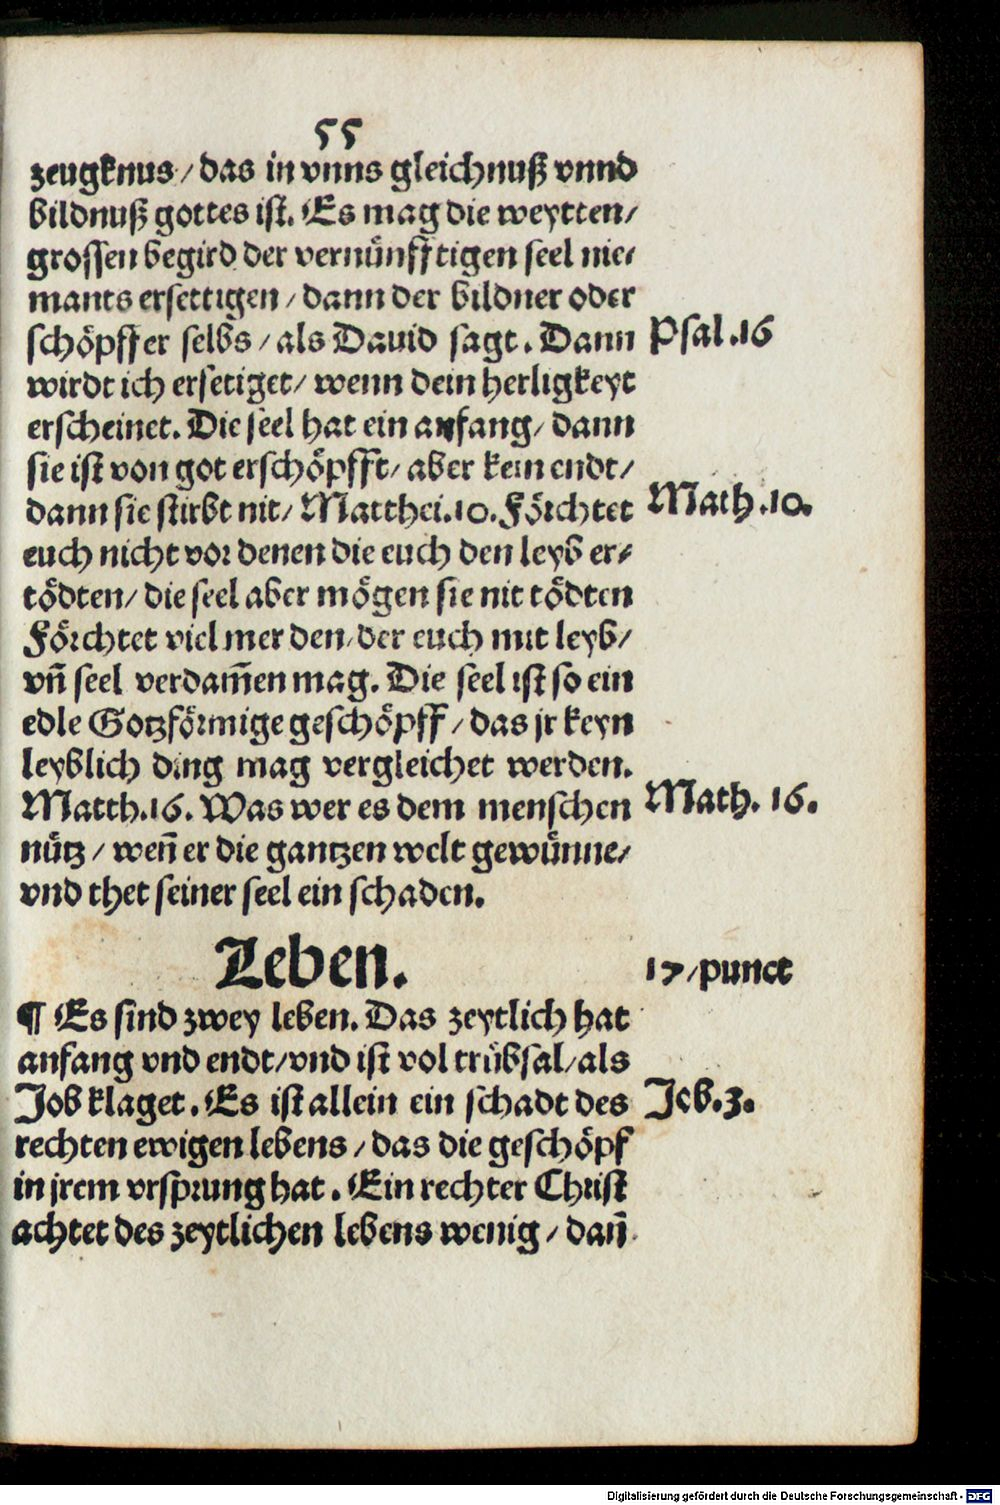 55
zeugknus / das in vnns gleichnuß vnnd
bildnuß gottes ist. Es mag die weytten /
grossen begird der vernünfftigen seel nie-
mants ersettigen / dann der bildner oder
schöpffer selbs / als Dauid sagt. Dann
Psal. 16
wirdt ich ersetiget / wenn dein herligkeyt
erscheinet. Die seel hat ein anfang / dann
sie ist von got erschöpfft / aber kein endt /
dann sie stirbt nit / Matthei. 10. Förchtet
Math. 10.
euch nicht vor denen die euch den leyb er-
tödten / die seel aber mögen sie nit tödten
Förchtet viel mer den / der euch mit leyb /
vñ seel verdam̄en mag. Die seel ist so ein
edle Gotzförmige geschöpff / das jr keyn
leyblich ding mag vergleichet werden.
Matth. 16. Was wer es dem menschen
Math. 16.
nütz / weñ er die gantzen welt gewünne /
vnd thet seiner seel ein schaden.
Leben.
17 / punct
¶ Es sind zwey leben. Das zeytlich hat
anfang vnd endt / vnd ist vol trübsal / als
Job klaget. Es ist allein ein schadt des
Job. 3.
rechten ewigen lebens / das die geschöpf
in jrem vrsprung hat. Ein rechter Christ
achtet des zeytlichen lebens wenig / dañ
Digitalisierung gefördert durch die Deutsche Forschungsgemeinschaft - DFG